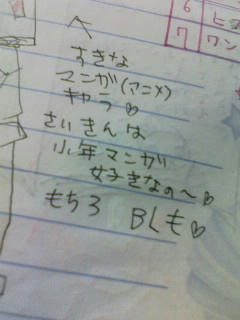 6 ヒ
7 ワン
すきな
マンガ(アニメ)
キャラ♡
さいきんは
少年マンガ
好きなの〜♡
もちろ BLも♡